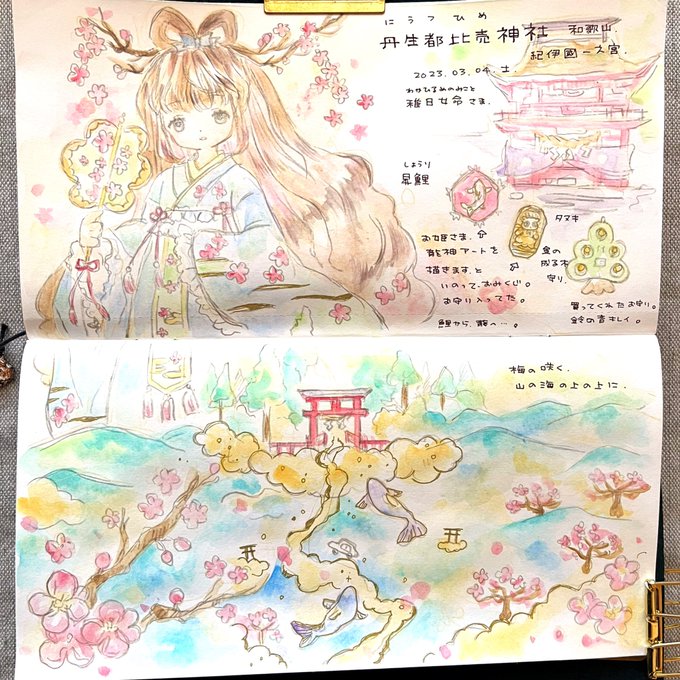 にうつひめ
丹生都比売神社 和歌山.
紀伊國一之宮.
2023.03.04.土.
わかひるめのみこと
稚日女命さま.
しょうり
昇鯉
お姫さま.
龍神アートを
描きます.と
いのって、おみくじ。
お守り入ってた。
鯉から、龍へ…。
タマキ
金の
成る木
守り.
買ってくれたお守り。
鈴の音キレイ。
梅の咲く.
山の海の上の上に.